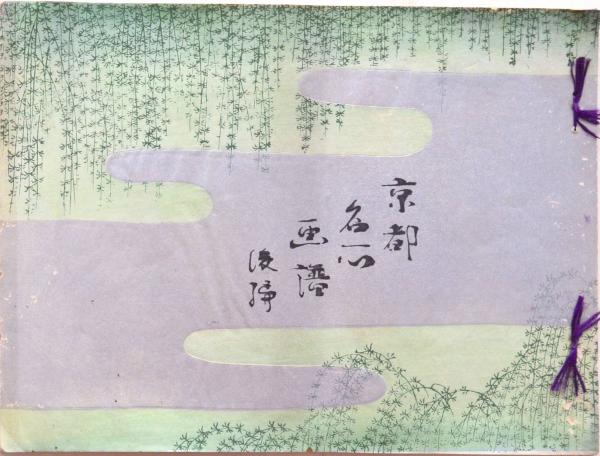 京都
名所
画譜
後編